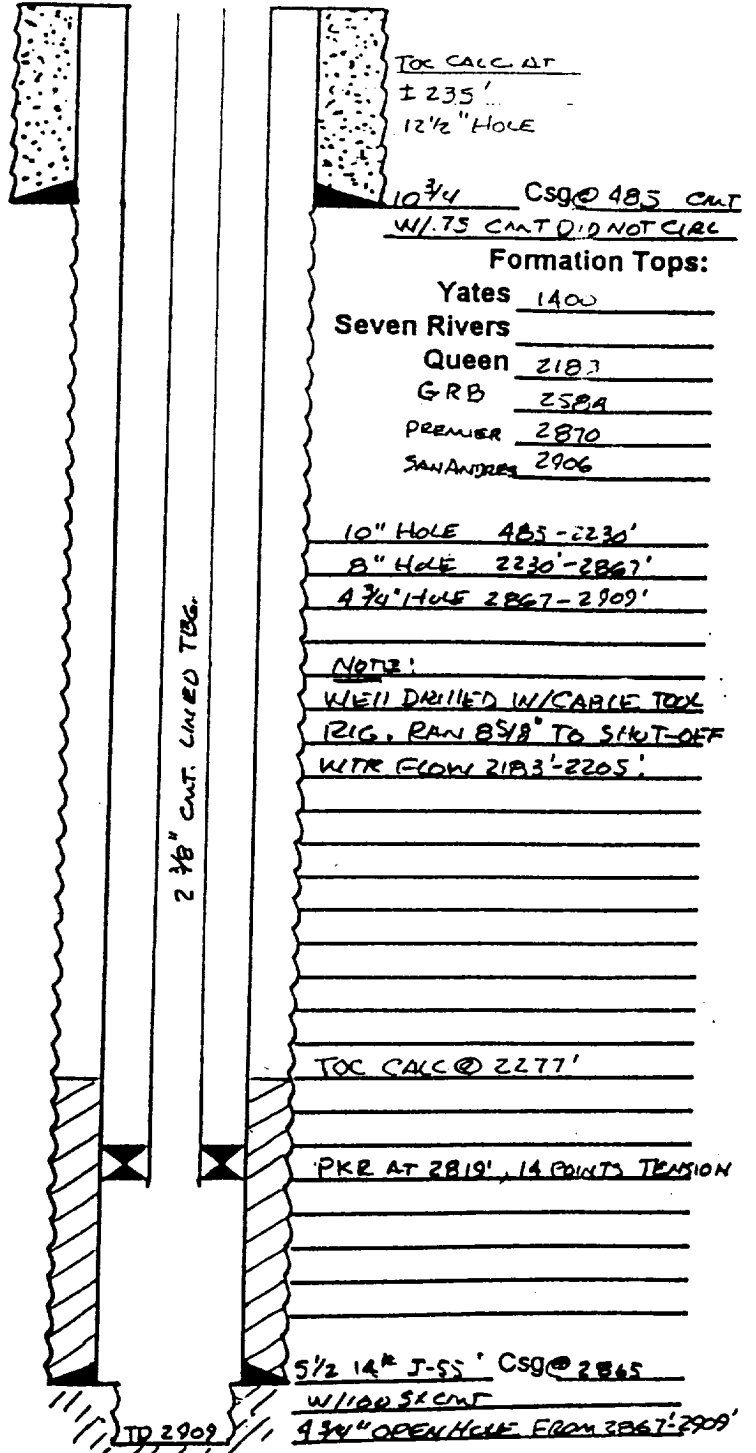 TOC CALC. AT
± 235'
12 1/2" HOLE
10 3/4 Csg@ 485 CMT
W/.75 CMT DID NOT CIRC
Formation Tops:
Yates 1400
Seven Rivers
Queen 2183
GRB 2584
PREMIER 2870
SAN ANDRES 2906
10" HOLE 485-2230'
8" HOLE 2230'-2867'
4 3/4" HOLE 2867-2909'
NOTE:
WELL DRILLED W/CABLE TOOL
RIG. RAN 8 5/8" TO SHUT-OFF
WTR FLOW 2183'-2205'.
2 3/8" CMT. LINED TBG.
TOC CALC @ 2277'
PKR AT 2819', 14 POINTS TENSION
5 1/2 14# J-55 Csg@ 2865
W/100 SX CMT
TD 2909
4 3/4" OPEN HOLE FROM 2867'-2909'